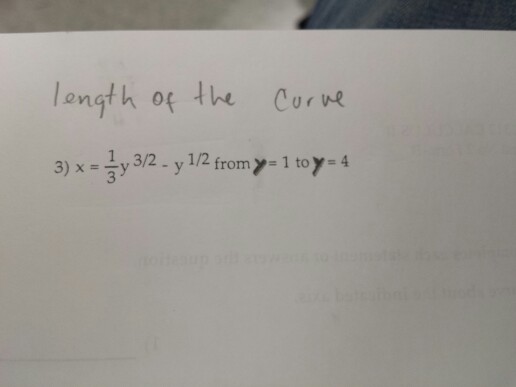 length of the curve
3) x = \frac{1}{3}y^{3/2} - y^{1/2} from y = 1 to y = 4